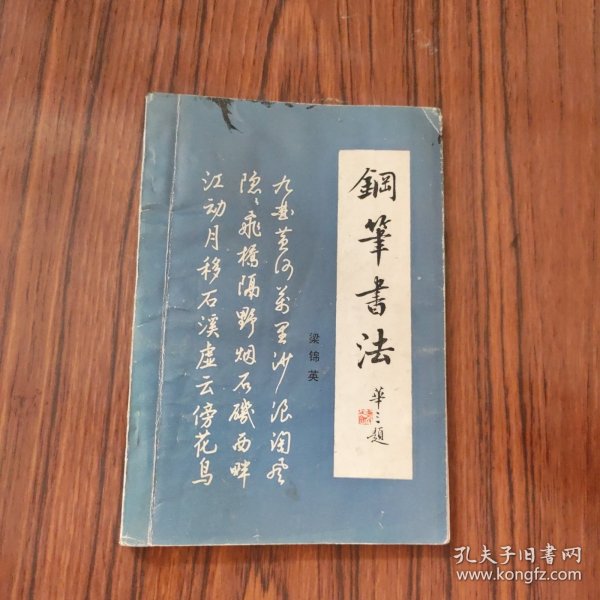 鋼筆書法
華三題
梁锦英
九曲黄河萬里沙浪淘風
隐隐飛橋隔野烟石磯西畔
江动月移石溪虚云傍花鸟
孔夫子旧书网
www.kongfz.com